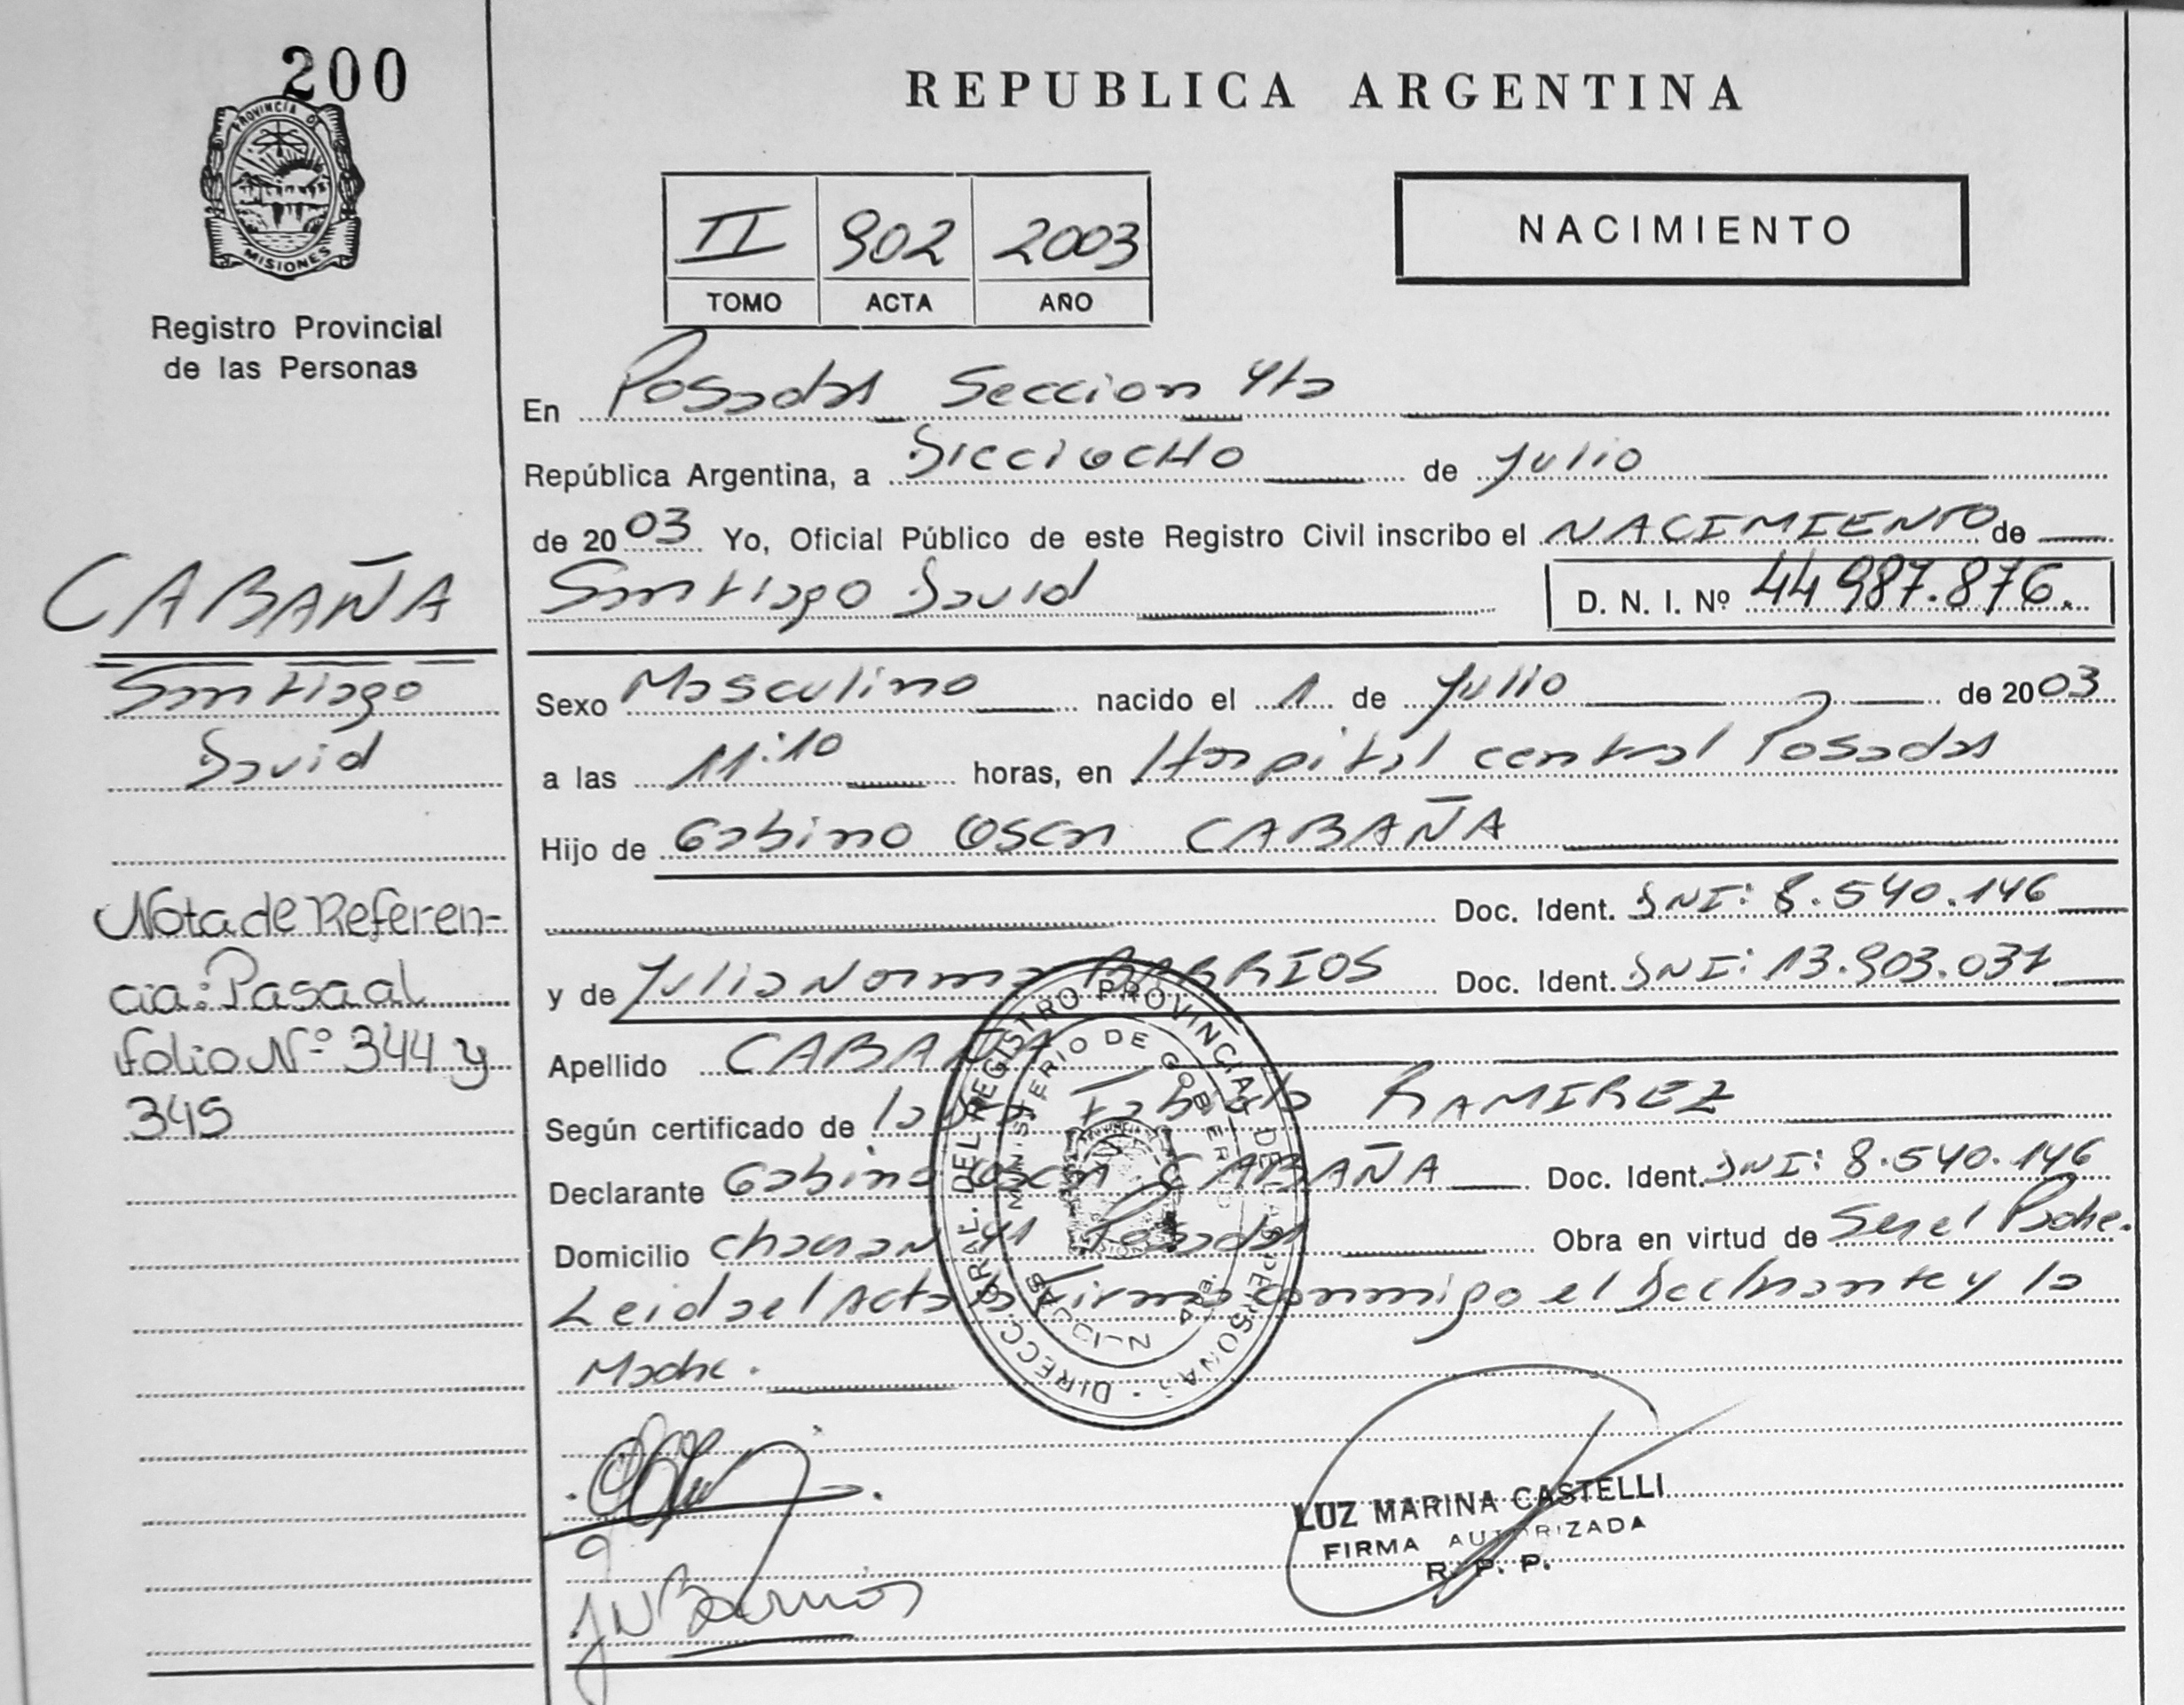 200
PROVINCIA DE
MISIONES
Registro Provincial
de las Personas
REPUBLICA ARGENTINA
II 902 2003
TOMO ACTA AÑO
NACIMIENTO
En Posadas Seccion 4ta
República Argentina, a Dieciocho de Julio
de 2003 Yo, Oficial Público de este Registro Civil inscribo el NACIMIENTO de
Santiago David D. N. I. Nº 44987.876.
Sexo Masculino nacido el 1 de Julio de 2003
a las 11:10 horas, en Hospital central Posadas
Hijo de Gabino Oscar CABAÑA
Doc. Ident. DNI: 8.540.146
y de Julia Norma BARRIOS Doc. Ident. DNI: 13.903.037
Apellido CABAÑA
Según certificado de RAMIREZ
Declarante Gabino Oscar CABAÑA Doc. Ident. DNI: 8.540.146
Domicilio chacra N 41 Posadas Obra en virtud de Ser el Padre.
Leida el Acta la Firma conmigo el Declarante y la
Madre.
CABAÑA
Santiago
David
Nota de Referen-
cia: Pasa al
folio Nº 344 y
345
DIRECC. GRAL. DEL REGISTRO PROVINCIAL DE LAS PERSONAS
MINISTERIO DE GOBIERNO
JNBarrios
LUZ MARINA CASTELLI
FIRMA AUTORIZADA
R. P. P.